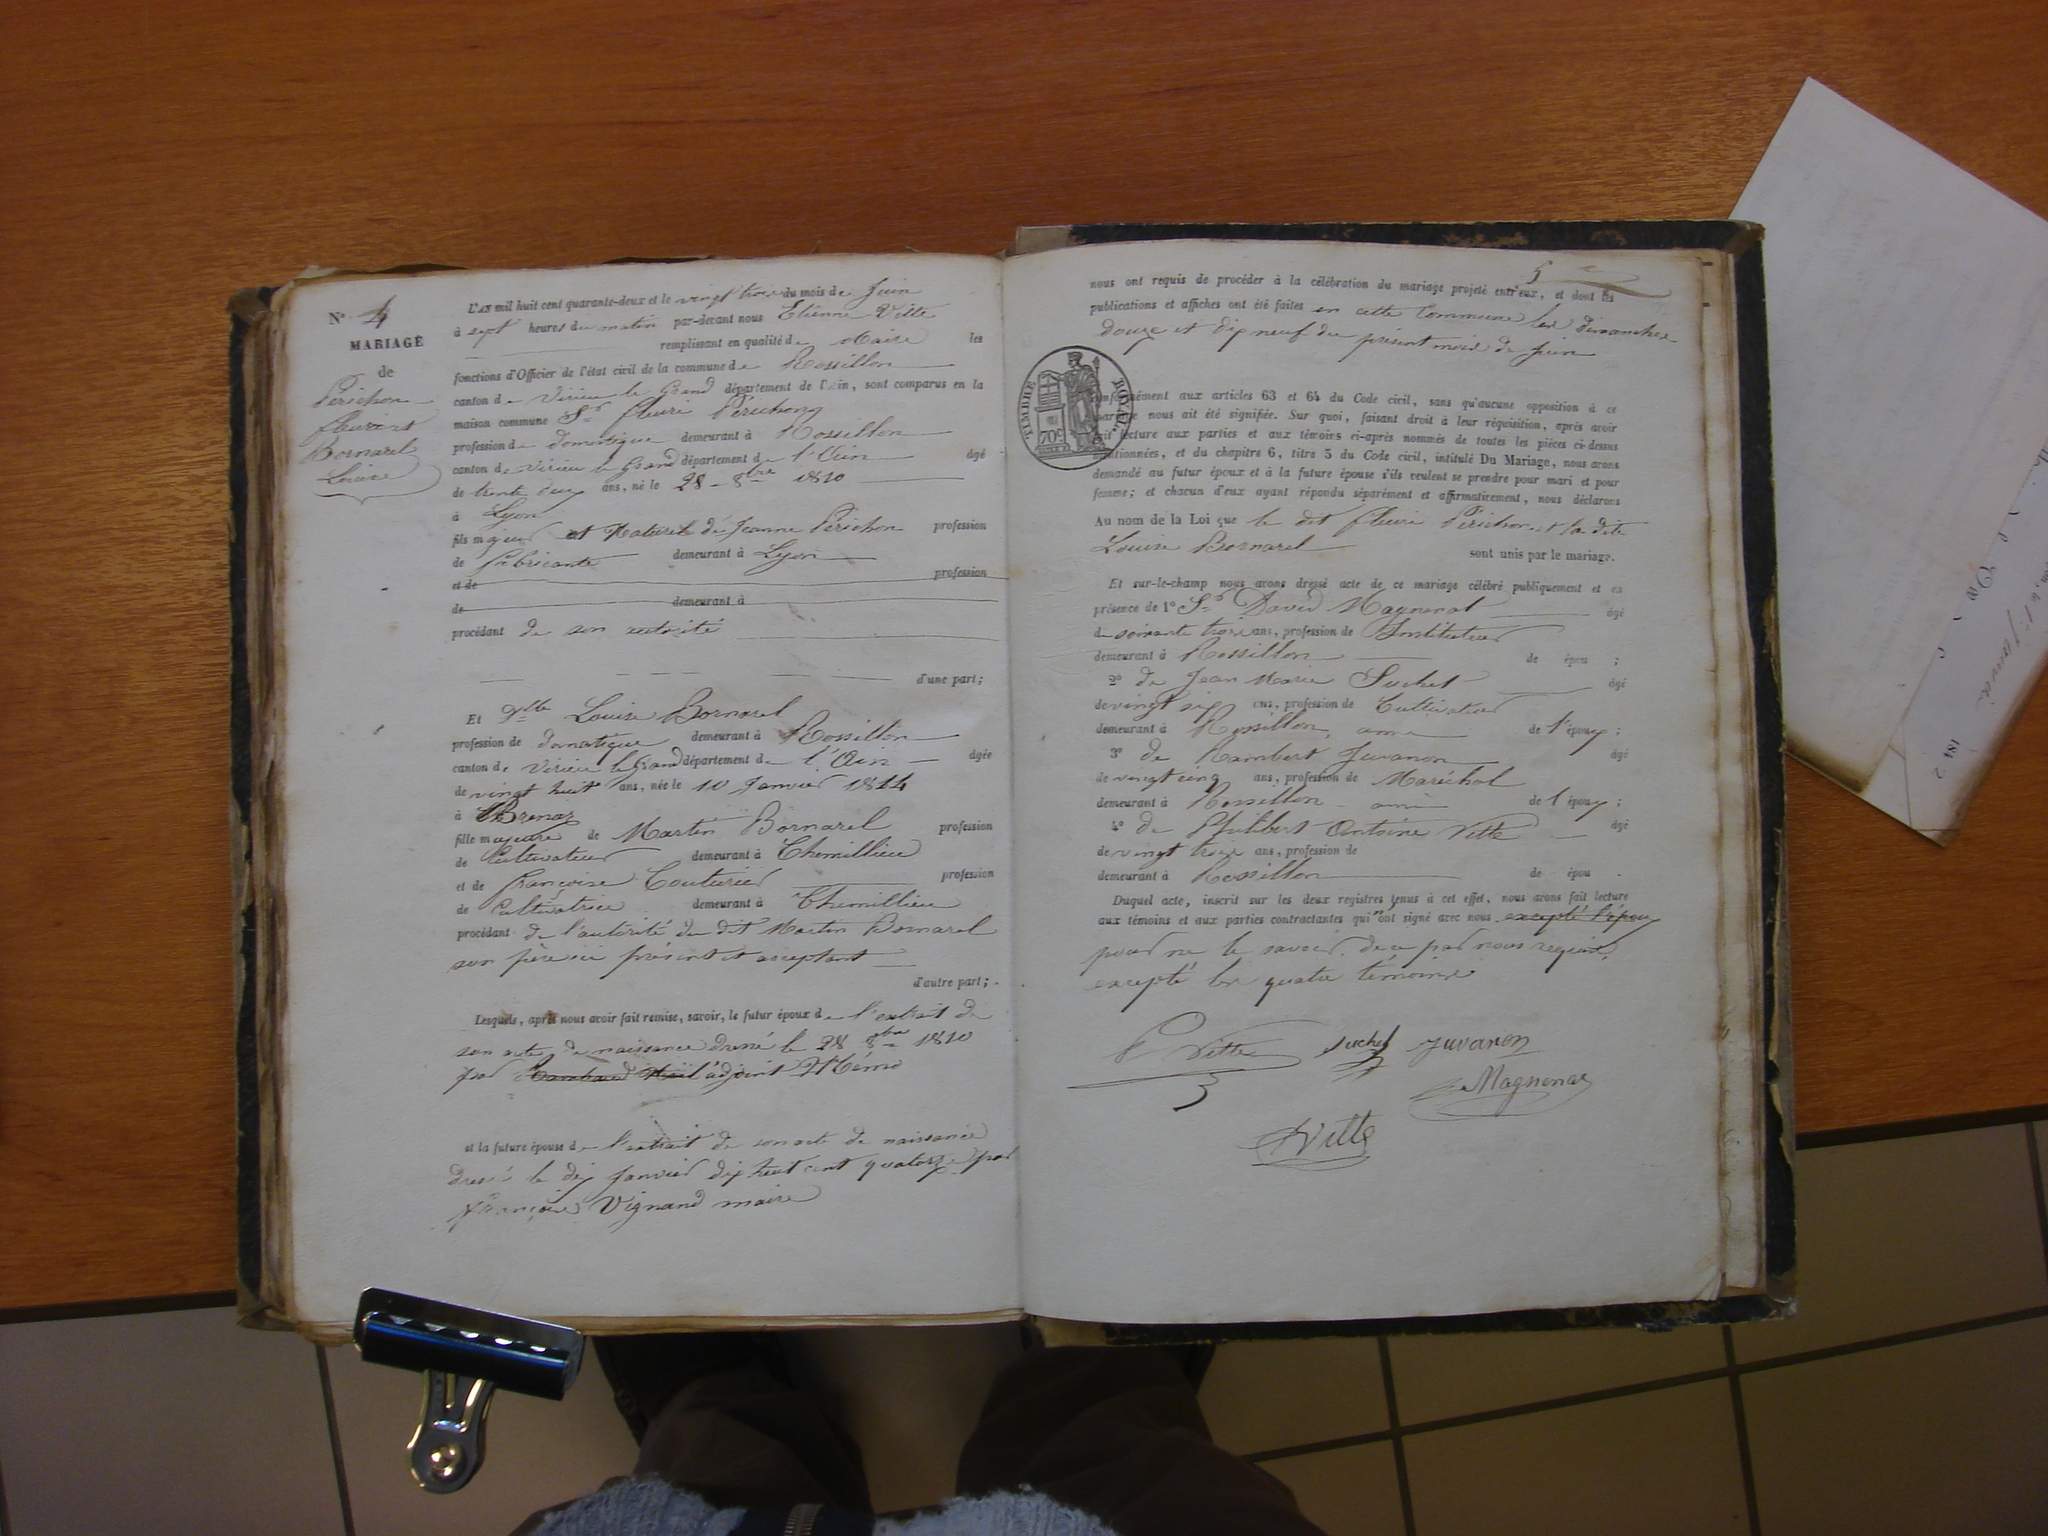 N° 4
MARIAGE
de
Périchon
fleurist
Bornarel
Louise
L'AN mil huit cent quarante-deux et le vingt trois du mois de Juin
à sept heures du matin par-devant nous Etienne Vitte
remplissant en qualité de Maire les
fonctions d'Officier de l'état civil de la commune de Rossillon
canton de Virieu le Grand département de l'Ain, sont comparus en la
maison commune Sr fleuri Périchon
profession de domestique demeurant à Rossillon
canton de Virieu le Grand département de l'Ain âgé
de trente deux ans, né le 28 8bre 1810
à Lyon
fils majeur et Naturel de Jeanne Périchon profession
de fabricante demeurant à Lyon
et de profession
de demeurant à
procédant de son autorité
d'une part;
Et Dlle Louise Bornarel
profession de domestique demeurant à Rossillon
canton de Virieu le Grand département de l'Ain âgée
de vingt huit ans, née le 10 Janvier 1814
à Brenaz
fille majeure de Martin Bornarel profession
de Cultivateur demeurant à Chemillieu
et de françoise Couturier profession
de Cultivatrice demeurant à Chemillieu
procédant de l'autorité du dit Martin Bornarel
son père ici présent et acceptant
d'autre part;
Lesquels, après nous avoir fait remise, savoir, le futur époux de l'extrait de
son acte de naissance dressé le 28 8bre 1810
par l'adjoint
et la future épouse de l'extrait de son acte de naissance
dressé le dix Janvier dix huit cent quatorze par
françois Vignand maire
5
nous ont requis de procéder à la célébration du mariage projeté entr'eux, et dont les
publications et affiches ont été faites en cette Commune les dimanches
douze et dix neuf du présent mois de Juin
TIMBRE ROYAL
70c
conformément aux articles 63 et 64 du Code civil, sans qu'aucune opposition à ce
mariage nous ait été signifiée. Sur quoi, faisant droit à leur réquisition, après avoir
fait lecture aux parties et aux témoins ci-après nommés de toutes les pièces ci-dessus
mentionnées, et du chapitre 6, titre 5 du Code civil, intitulé Du Mariage, nous avons
demandé au futur époux et à la future épouse s'ils veulent se prendre pour mari et pour
femme; et chacun d'eux ayant répondu séparément et affirmativement, nous déclarons
Au nom de la Loi que le dit fleuri Périchon et la dite
Louise Bornarel sont unis par le mariage.
Et sur-le-champ nous avons dressé acte de ce mariage célébré publiquement et en
présence de 1° Sr David Magnenat âgé
de soixante trois ans, profession de Instituteur
demeurant à Rossillon de épou ;
2° de Jean Marie Suchet âgé
de vingt six ans, profession de Cultivateur
demeurant à Rossillon, ami de l'époux ;
3° de Rambert Juvanon âgé
de vingt cinq ans, profession de Maréchal
demeurant à Rossillon ami de l'époux ;
4° de Philibert Antoine Vitte âgé
de vingt trois ans, profession de
demeurant à Rossillon de épou .
Duquel acte, inscrit sur les deux registres tenus à cet effet, nous avons fait lecture
aux témoins et aux parties contractantes qui n'ont signé avec nous excepté l'époux
pour ne le savoir de ce par nous requis,
excepté les quatre témoins
Vitte Suchet Juvanon
Magnenat
Vitte
1842